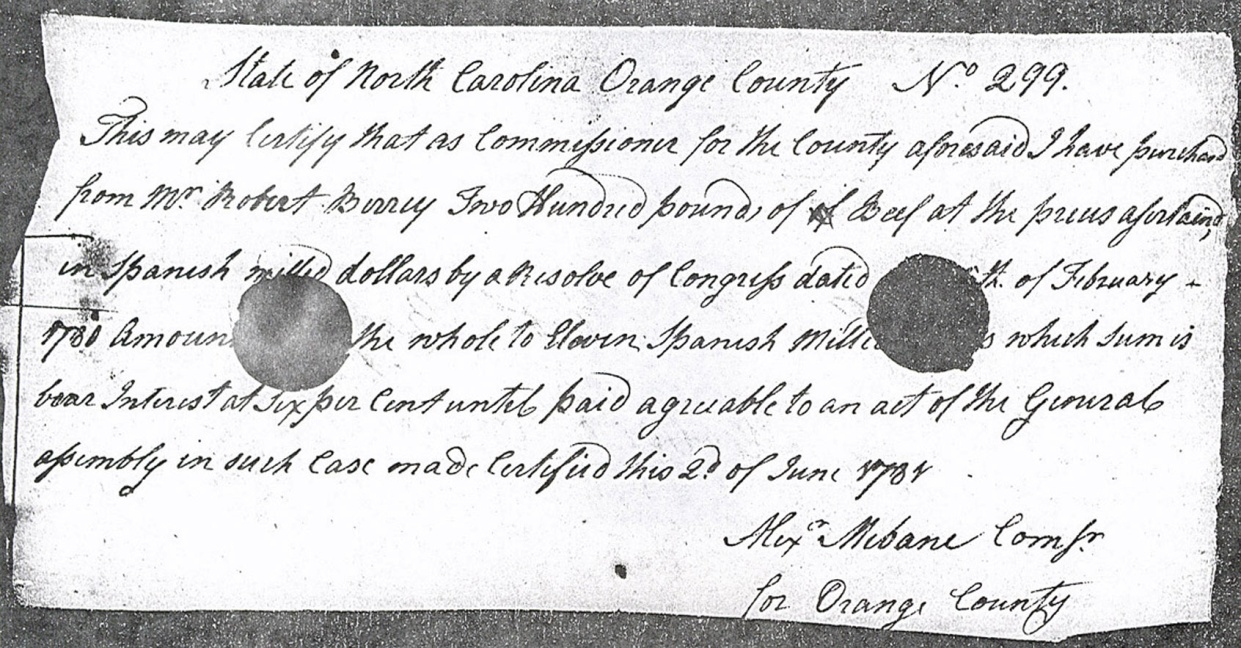 State of North Carolina Orange County No 299.
This may Certify that as Commissioner for the County aforesaid I have purchasd
from Mr Robert Berrey Two Hundred pounds of Beef at the prices asertaind,
in Spanish milled dollars by a Resolve of Congress dated th. of February -
1780 Amoun the whole to Eleven Spanish Mille s which sum is
bear Interest at six per Cent until paid agreable to an act of the General
assembly in such Case made Certified this 2d of June 1781
Alexr Mebane Comsr
for Orange County